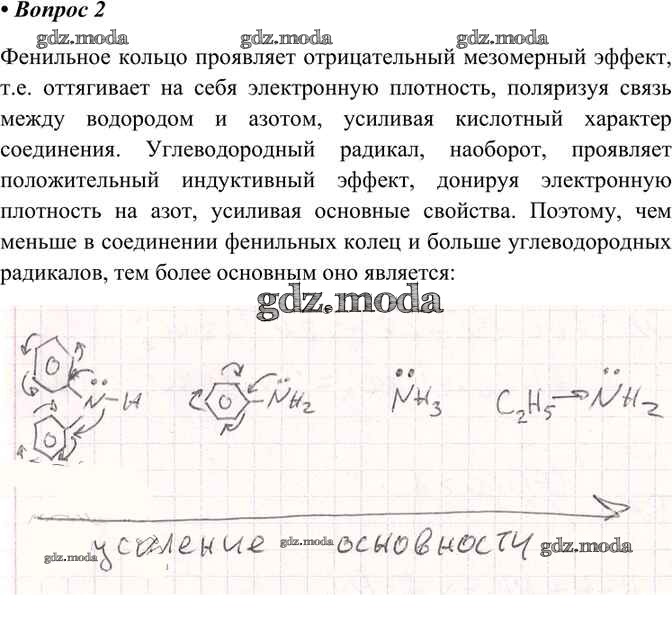 • Вопрос 2
gdz.moda gdz.moda gdz.moda
Фенильное кольцо проявляет отрицательный мезомерный эффект,
т.е. оттягивает на себя электронную плотность, поляризуя связь
между водородом и азотом, усиливая кислотный характер
соединения. Углеводородный радикал, наоборот, проявляет
положительный индуктивный эффект, донируя электронную
плотность на азот, усиливая основные свойства. Поэтому, чем
меньше в соединении фенильных колец и больше углеводородных
радикалов, тем более основным оно является:
gdz.moda
N-H NH2 NH3 C2H5 NH2
усиление основности
gdz.moda gdz.moda gdz.moda